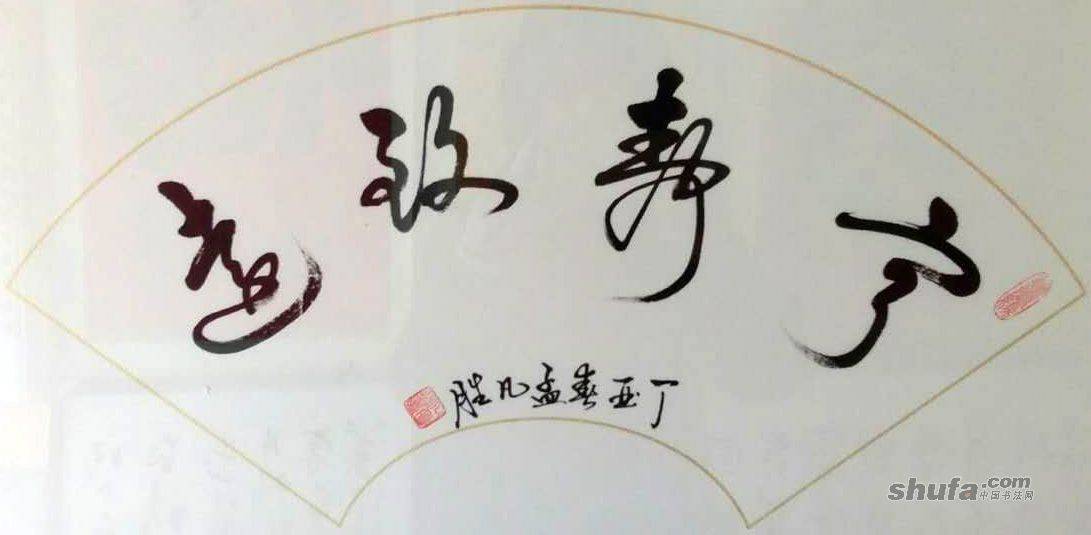 宁静致远
丁酉春孟凡胜
shufa.com
中国书法网